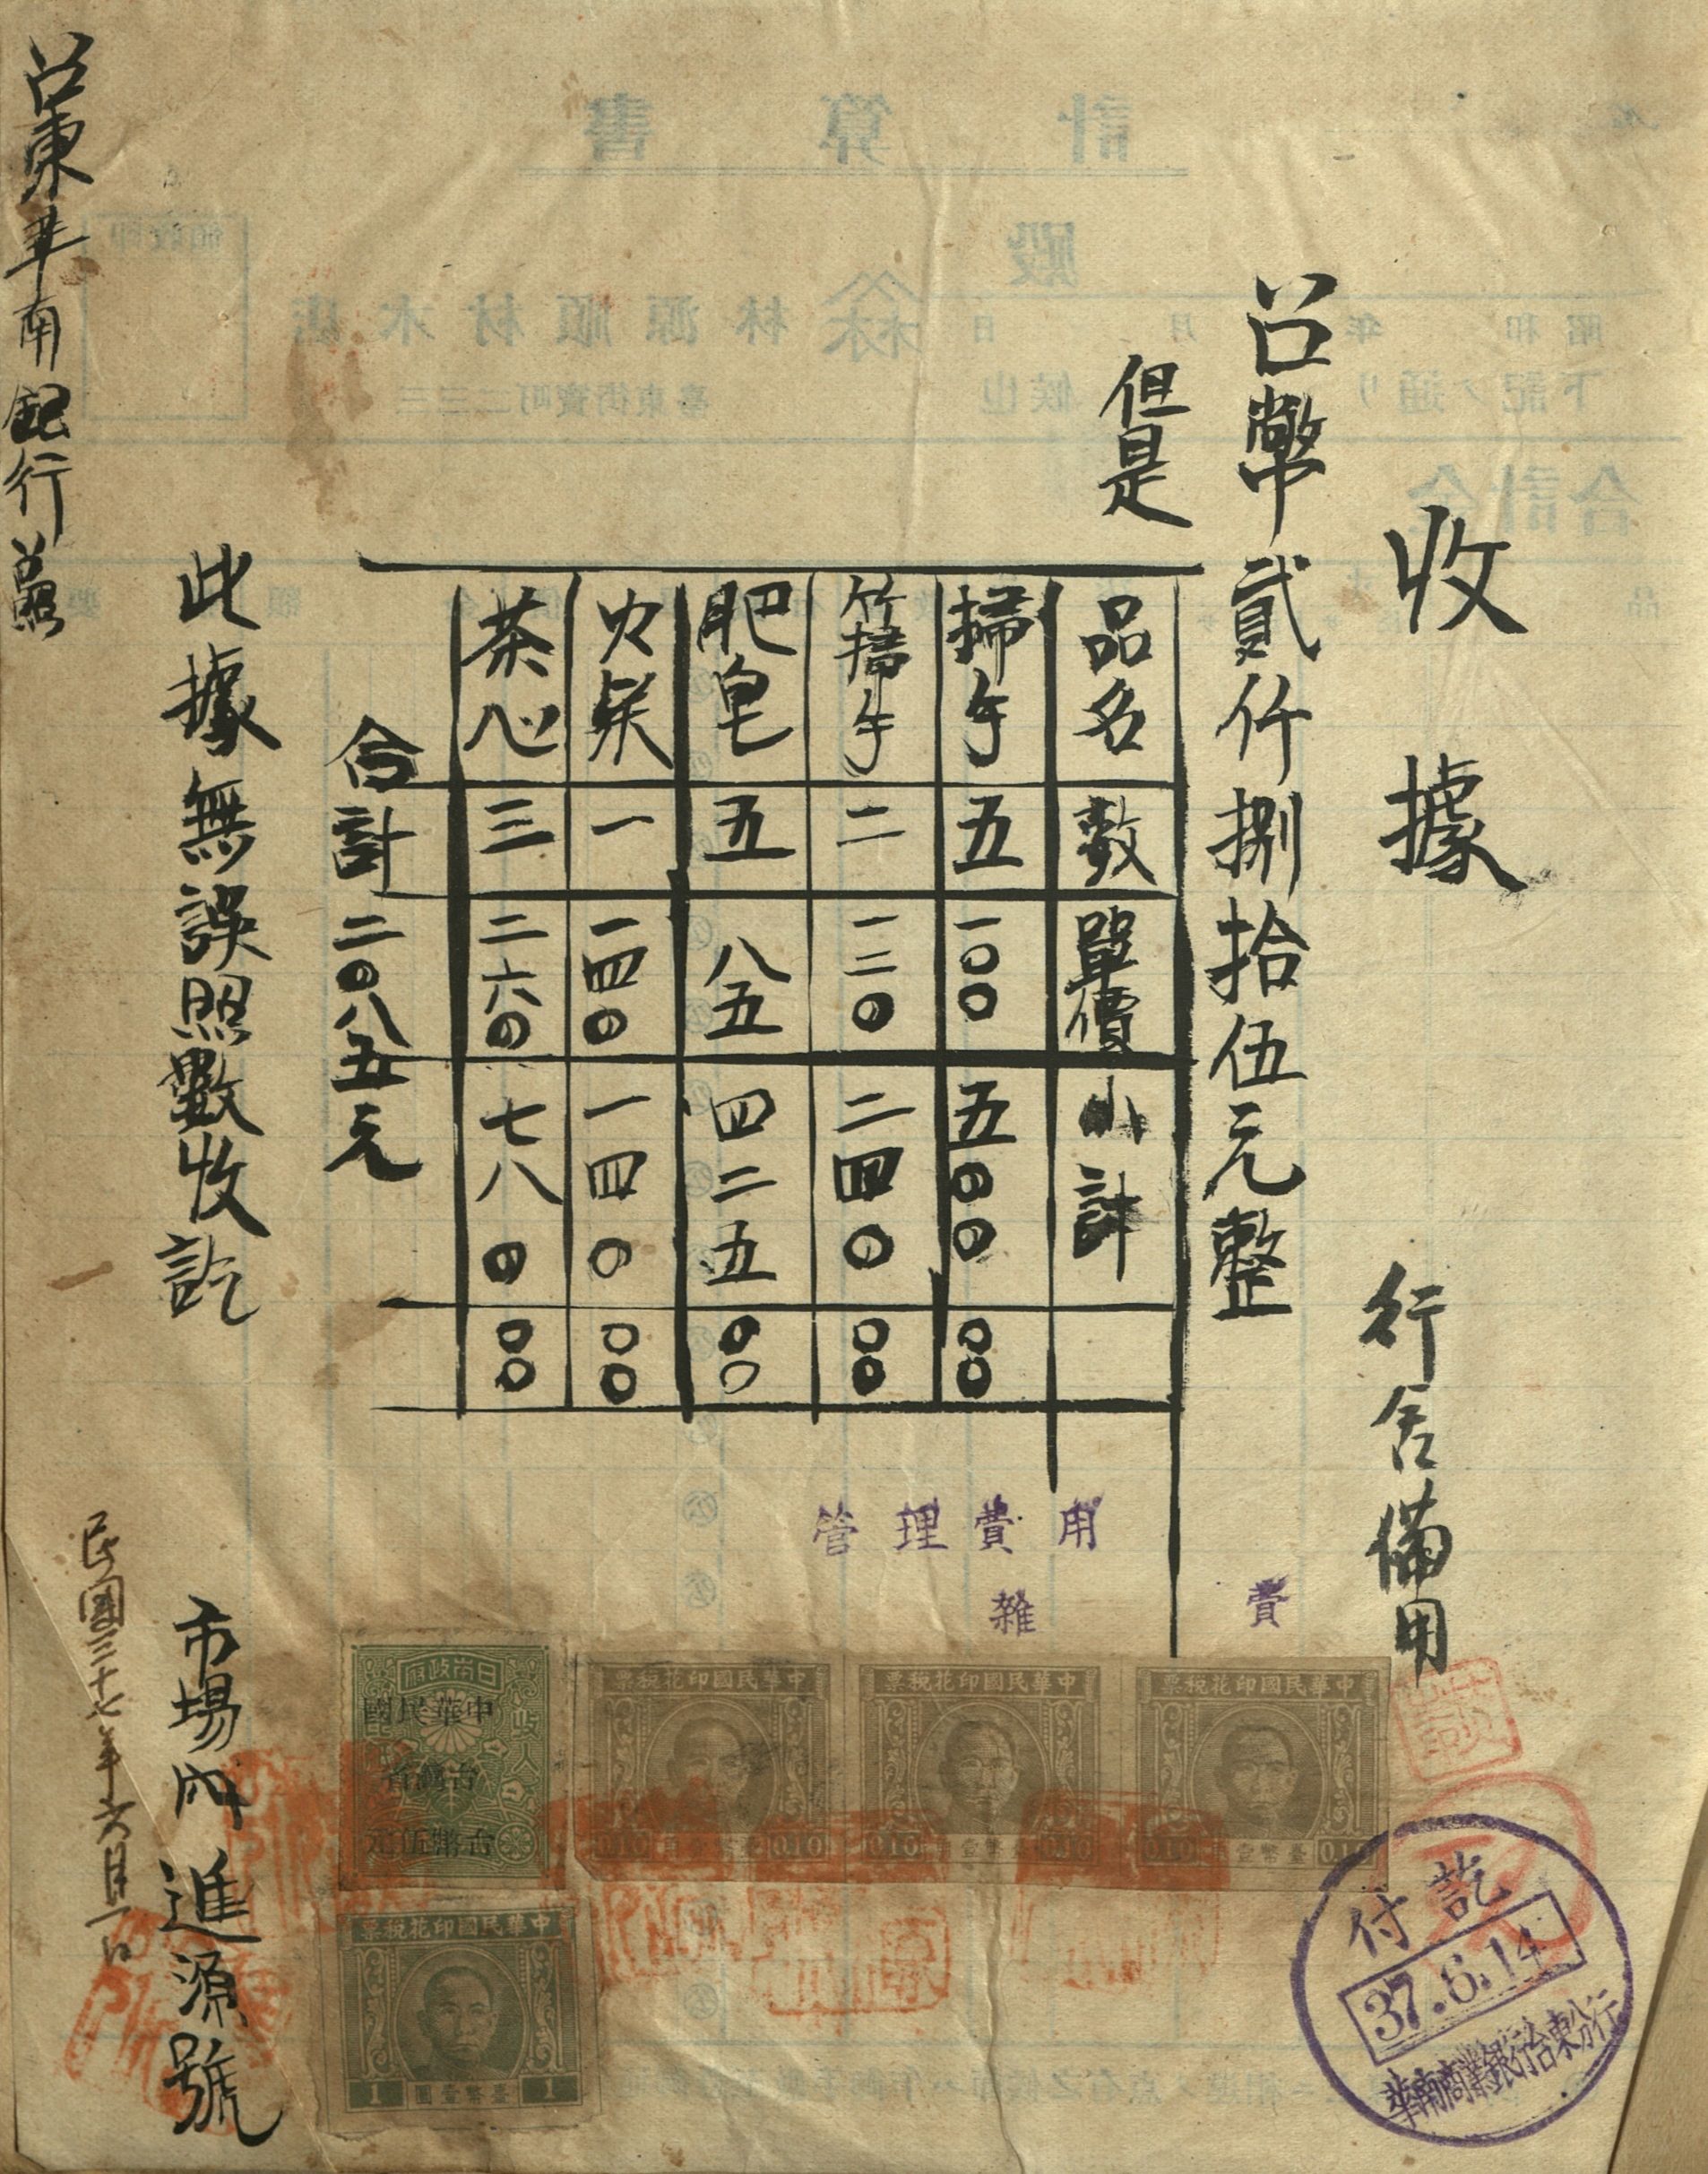 收據
行舍備用
台幣貳仟捌拾伍元整
但是
品名 數 單價 小計
掃手 五 一〇〇 五〇〇 〇〇
竹掃手 二 一二〇 二四〇 〇〇
肥皂 五 八五 四二五 〇〇
火柴 一 一四〇 一四〇 〇〇
茶心 三 二六〇 七八〇 〇〇
合計二〇八五元
此據無誤照數收訖
市場內 進源號
民國三十七年六月一日
台東華南銀行
管理費用
雜費
付訖
37.6.14
華南商業銀行台東分行
中華民國
台灣省
台幣伍元
中華民國印花稅票
0.10 0.10
中華民國印花稅票
0.10 0.10
中華民國印花稅票
0.10 0.10
中華民國印花稅票
1 臺幣壹圓 1
計算書
殿
昭和 年 月 日
下記ノ通リ 候也
林源順材木店
臺東街寶町二二三
領收印
合計金